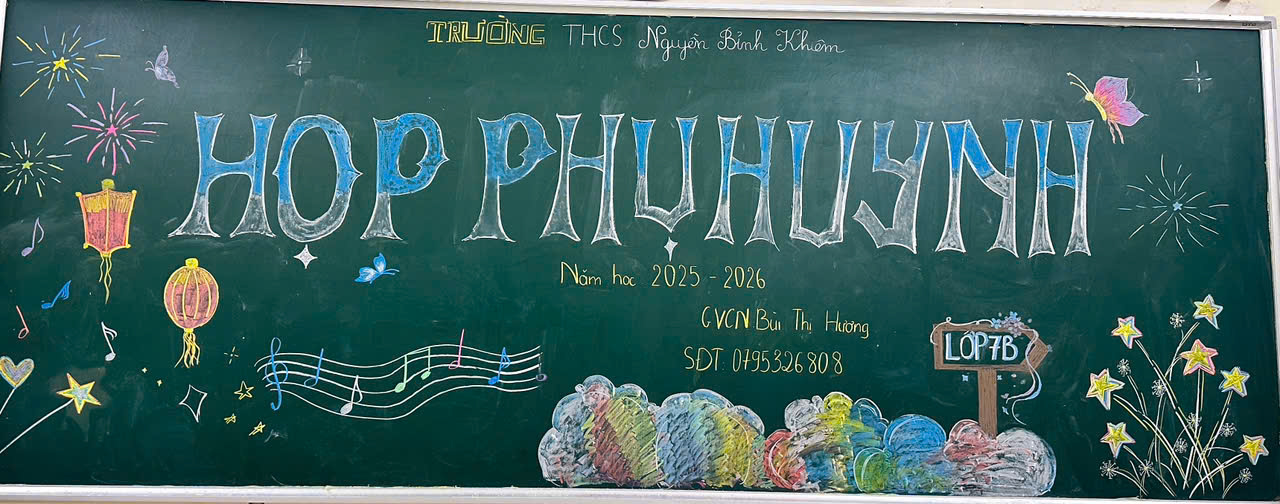 TRƯỜNG THCS Nguyễn Bỉnh Khiêm
HỌP PHỤ HUYNH
Năm học 2025 - 2026
GVCN Bùi Thị Hương
SĐT: 0795326808
LỚP 7B